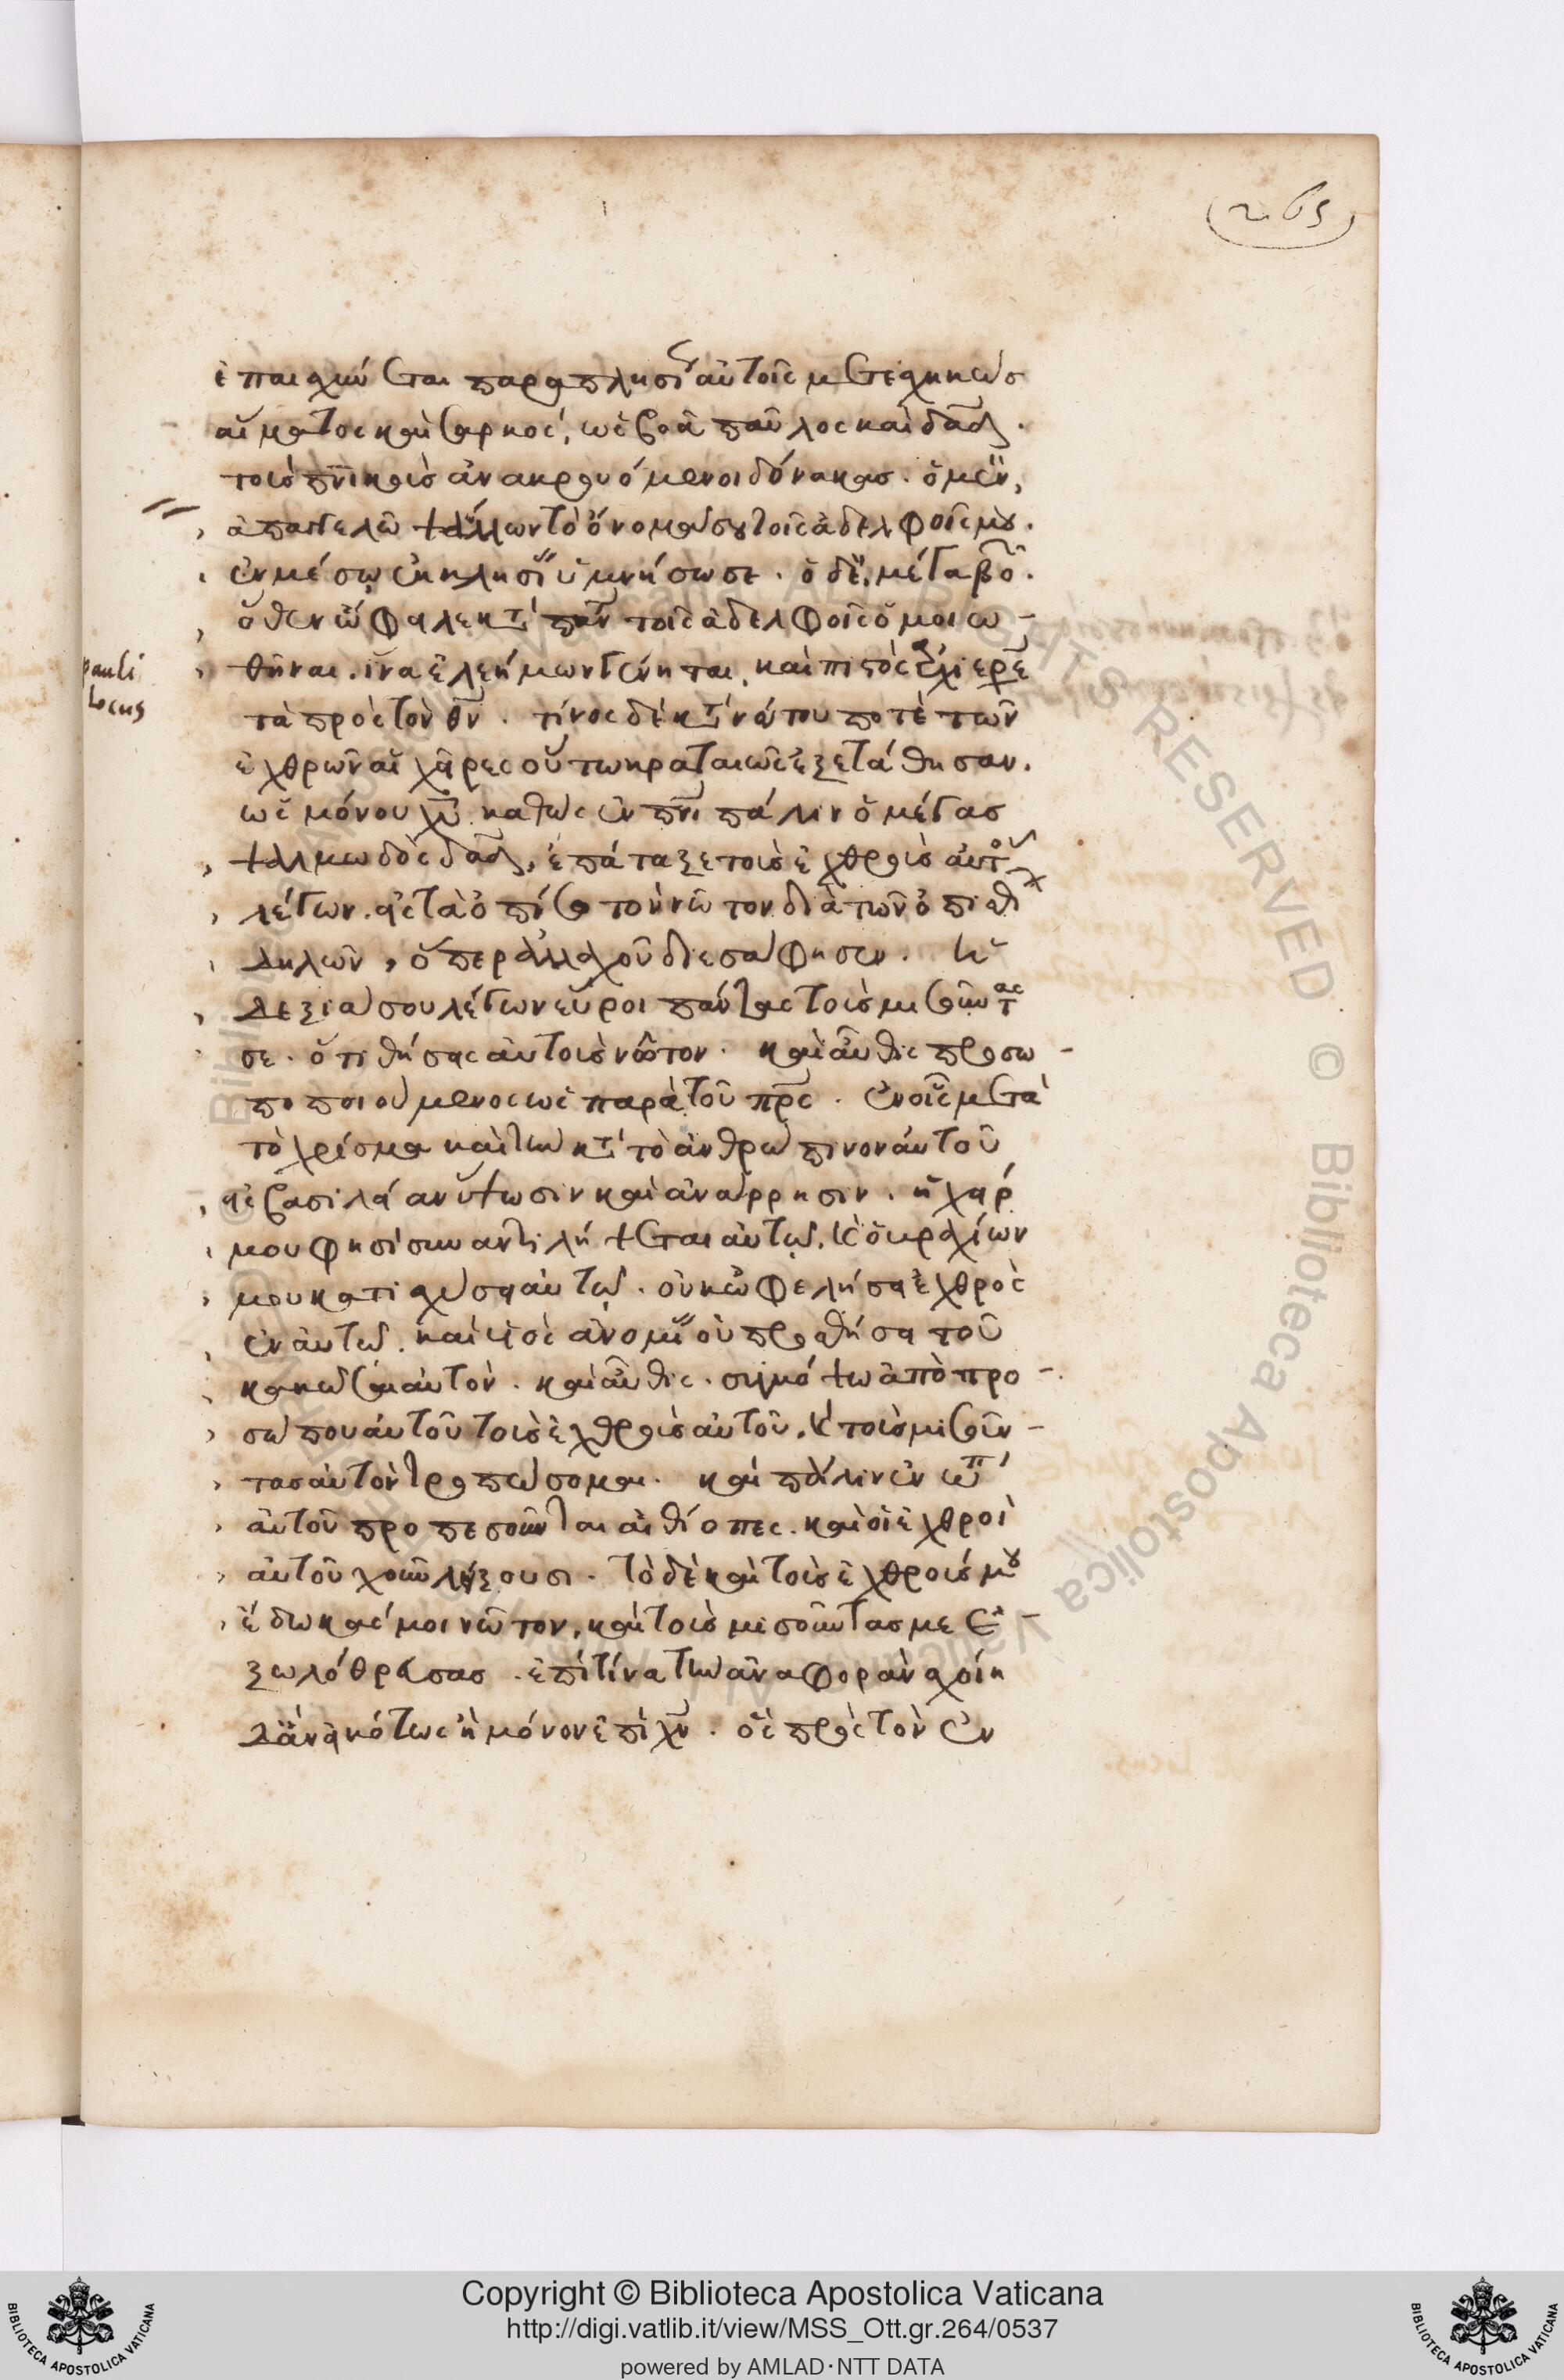 265
ἐπαισχύνεται παραπλησί αὐτοῖς μετεσχηκὼς
αἵματος καὶ σαρκός, ὡς βοᾷ παῦλος καὶ δαδ.
τοὺς πνικοὺς ἀνακρουόμενοι δόνακας. ὁ μὲν,
ἀπαγγελῶ ψάλλων τὸ ὄνομά σου τοῖς ἀδελφοῖς μου.
ἐν μέσῳ ἐκκλησί ὑμνήσω σε. ὁ δὲ, μέγα βο.
ὅθεν ὤφειλε κτ παντ τοῖς ἀδελφοῖς ὁμοιω-
pauli
locus
θῆναι. ἵνα ἐλεήμων γένηται, καὶ πιστὸς ἀρχιερε
τὰ πρὸς τὸν θν. τίνος δὲ κτ νώτου ποτὲ τῶν
ἐχθρῶν αἱ χεῖρες οὕτω κραταιῶς ἐξετάθησαν.
ὡς μόνου χυ. καθὼς ἐν πνι πάλιν ὁ μέγας
ψαλμωδὸς δαδ, ἐπάταξε τοὺς ἐχθροὺς αὐτοῦ
λέγων. εἰς τὰ ὀπίσω τὸν νῶτον διὰ τῶν ὀπισθ
δηλῶν, ὅπερ ἀλλαχοῦ διεσάφησεν. ἡ
δεξιά σου λέγων εὕροι πάντας τοὺς μισοῦντας
σε. ὅτι θήσεις αὐτοὺς νῶτον. καὶ αὖθις προσω-
ποποιούμενος ὡς παρὰ τοῦ πρς. ἐν οἷς μετὰ
τὸ χρίσμα καὶ τὴν κτ τὸ ἀνθρώπινον αὐτοῦ
εἰς βασιλέα ὕψωσιν καὶ ἀνάρρησιν. ἡ χείρ
μου φησί συναντιλήψεται αὐτῷ. καὶ ὁ βραχίων
μου κατισχύσει αὐτῷ. οὐκ ὠφελήσει ἐχθρὸς
ἐν αὐτῷ. καὶ υἱὸς ἀνομί οὐ προσθήσει τοῦ
κακῶσαι αὐτόν. καὶ αὖθις. συγκόψω ἀπὸ προ-
σώπου αὐτοῦ τοὺς ἐχθροὺς αὐτοῦ. καὶ τοὺς μισοῦν-
τας αὐτὸν τροπώσομαι. καὶ πάλιν ἐνώπ
αὐτοῦ προπεσοῦνται αἰθίοπες. καὶ οἱ ἐχθροὶ
αὐτοῦ χοῦν λήξουσι. τὸ δὲ καὶ τοὺς ἐχθρούς μου
ἔδωκάς μοι νῶτον, καὶ τοὺς μισοῦντας με ἐ-
ξωλόθρευσας. ἐπί τίνα τὴν ἀναφορὰν σχοίη
δ' ἂν εἰκότως ἢ μόνον ἐπὶ χν. ὃς πρὸς τὸν ἐν
Copyright © Biblioteca Apostolica Vaticana
http://digi.vatlib.it/view/MSS_Ott.gr.264/0537
powered by AMLAD·NTT DATA
BIBLIOTECA APOSTOLICA VATICANA
BIBLIOTECA APOSTOLICA VATICANA